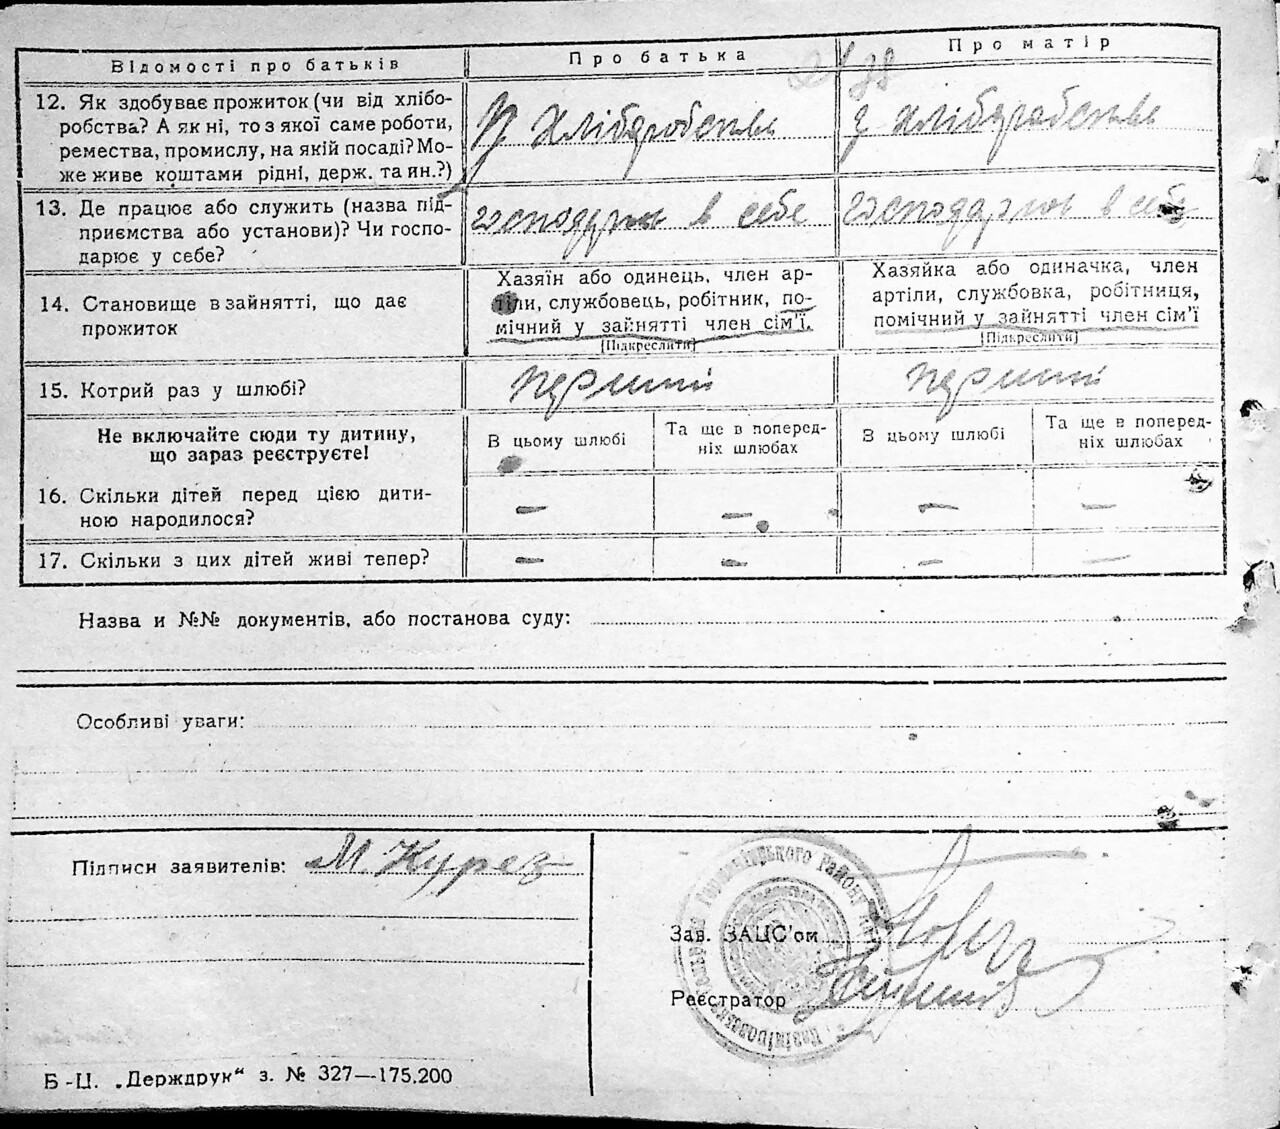 Відомості про батьків
Про батька
Про матір
12. Як здобуває прожиток (чи від хлібо-
робства? А як ні, то з якої саме роботи,
ремества, промислу, на якій посаді? Мо-
же живе коштами рідні, держ. та ин.?)
З Хліборобства
з хліборобства
13. Де працює або служить (назва під-
приємства або установи)? Чи госпо-
дарює у себе?
господарює в себе
господарює в себе
14. Становище в зайнятті, що дає
прожиток
Хазяїн або одинець, член ар-
тіли, службовець, робітник, по-
мічний у зайнятті член сім'ї.
[Підкреслити]
Хазяйка або одиначка, член
артіли, службовка, робітниця,
помічний у зайнятті член сім'ї
[Підкреслити]
15. Котрий раз у шлюбі?
перший
перший
Не включайте сюди ту дитину,
що зараз реєструєте!
В цьому шлюбі
Та ще в поперед-
ніх шлюбах
З цьому шлюбі
Та ще в поперед-
ніх шлюбах
16. Скільки дітей перед цією дити-
ною народилося?
— — — —
17. Скільки з цих дітей живі тепер?
— — — —
Назва и №№ документів, або постанова суду:
Особливі уваги:
Підписи заявителів: М. Курез
Зав. ЗАЦС'ом
Реєстратор
Б-Ц. „Держдрук“ з. № 327—175.200